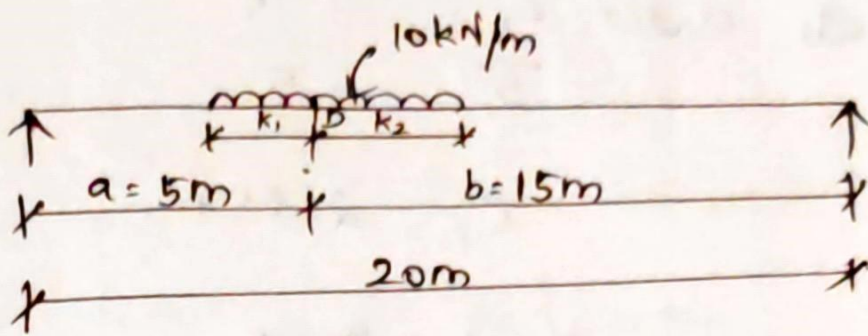 10kN/m
k₁ D k₂
a = 5m b = 15m
20m